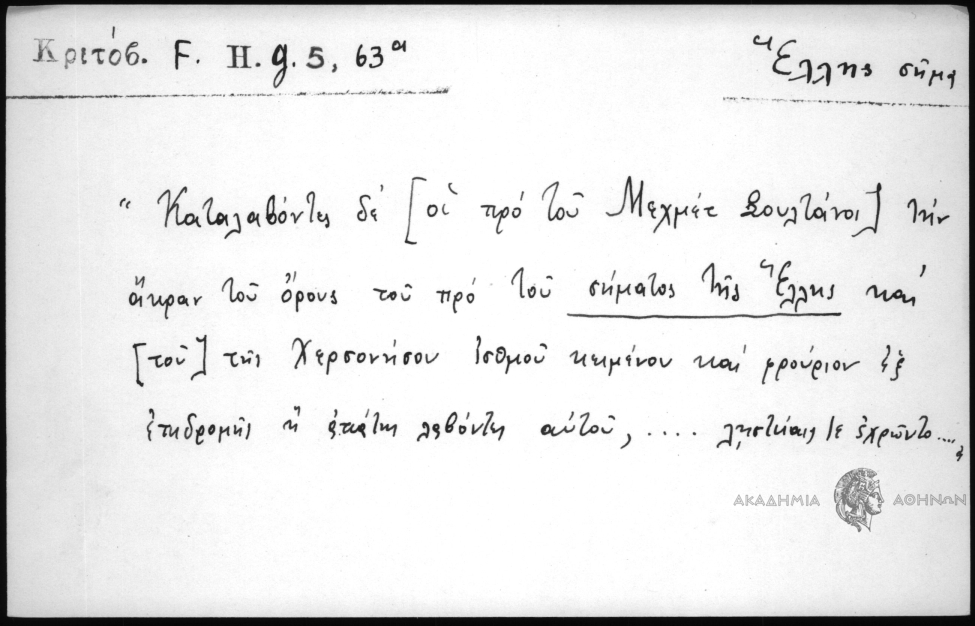 Κριτόβ. F. H. g. 5, 63ᵃ
Ἕλλης σῆμα
“ Καταλαβόντες δέ [οἱ πρό τοῦ Μεχμέτ Σουλτάνοι] τήν
ἄκραν τοῦ ὄρους τοῦ πρό τοῦ σήματος τῆς Ἕλλης καί
[τοῦ] τῆς Χερσονήσου ἰσθμοῦ κειμένου καί φρούριον ἐξ
ἐπιδρομῆς ἤ ἀπάτης λαβόντες αὐτοῦ, .... λῃστείαις τε ἐχρῶντο....,
ΑΚΑΔΗΜΙΑ ΑΘΗΝΩΝ